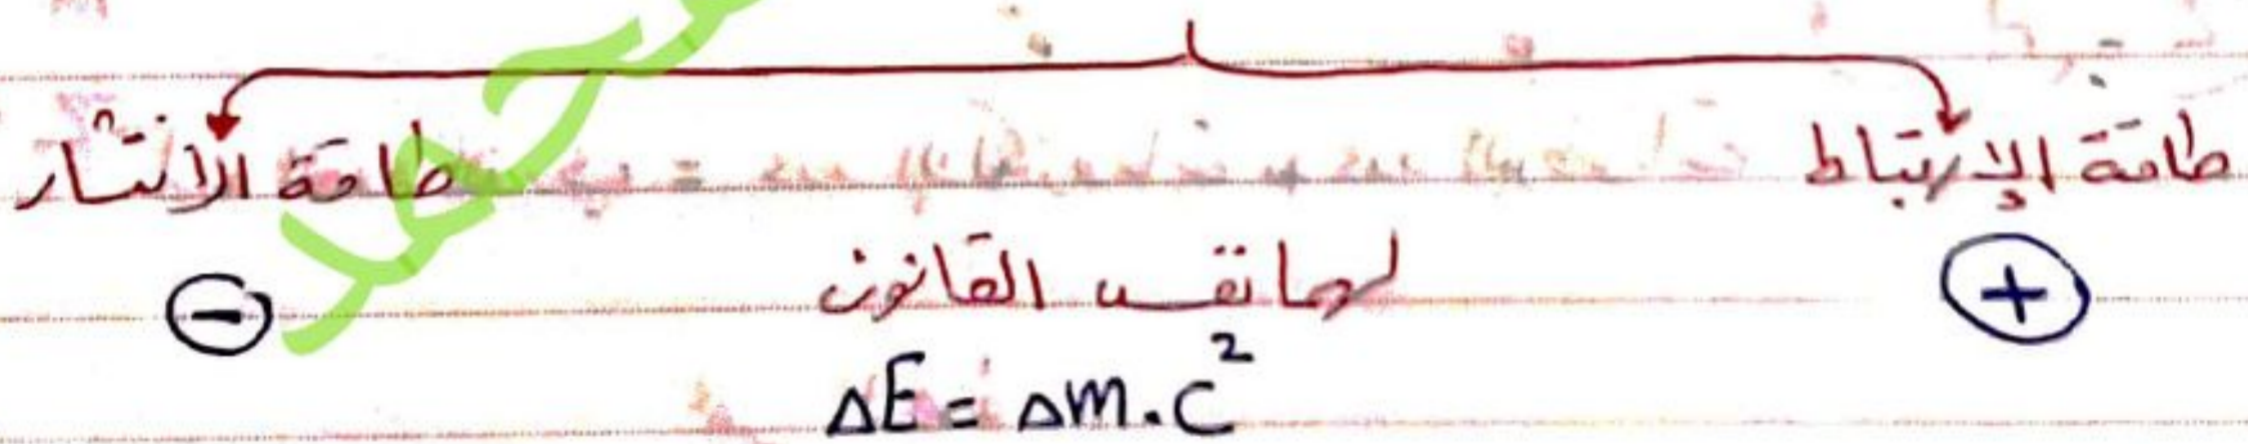 طاقة الإرتباط طاقة الانتشار
⊕ لهما نفس القانون ⊖
ΔE = Δm . C²